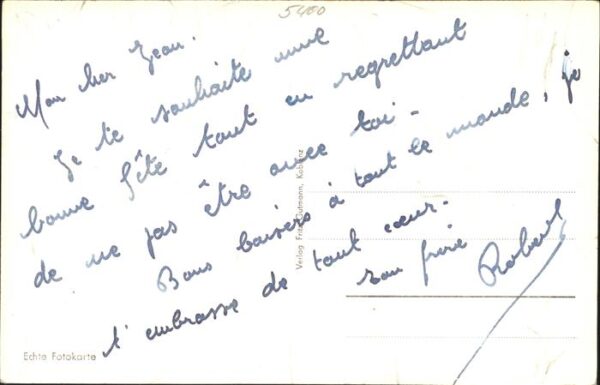 5400
Mon cher Jean.
Je te souhaite une
bonne fête tout en regrettant
de ne pas être avec toi.
Bons baisers à tout le monde, je
t'embrasse de tout cœur.
ton frère
Robert
Verlag Fritz Gutmann, Koblenz
Echte Fotokarte